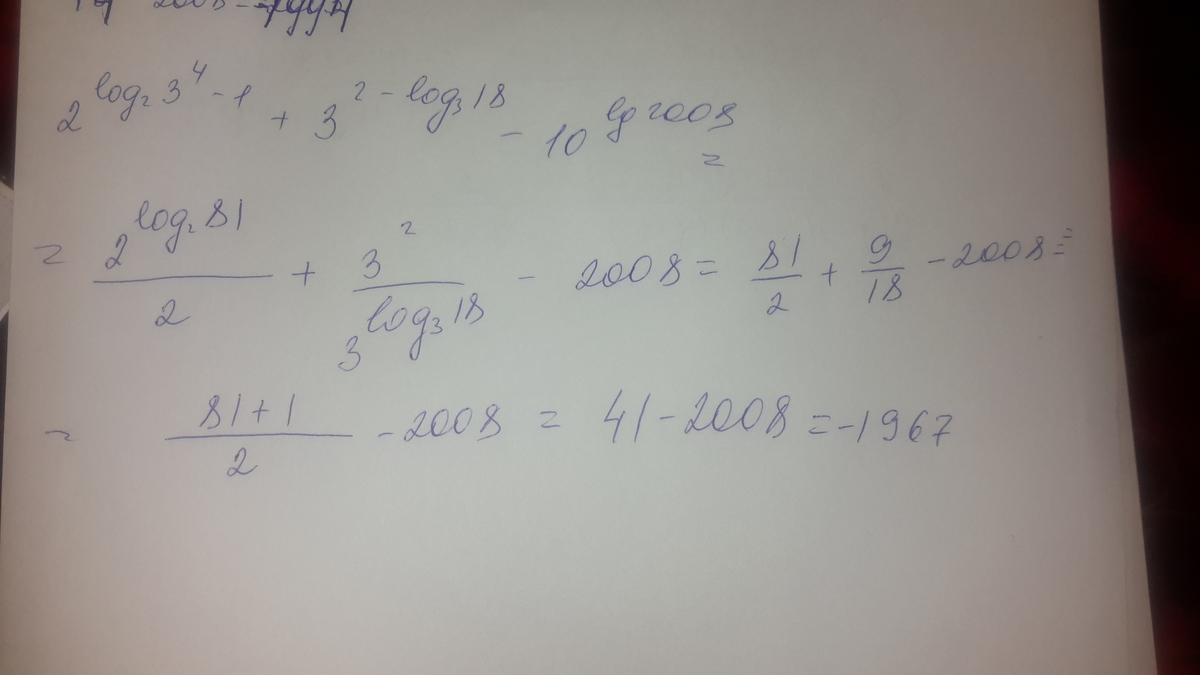 2008
2^{log_2 3^4 - 1} + 3^{2 - log_3 18} - 10^{lg 2008} =
= \frac{2^{log_2 81}}{2} + \frac{3^2}{3^{log_3 18}} - 2008 = \frac{81}{2} + \frac{9}{18} - 2008 =
= \frac{81+1}{2} - 2008 = 41 - 2008 = -1967